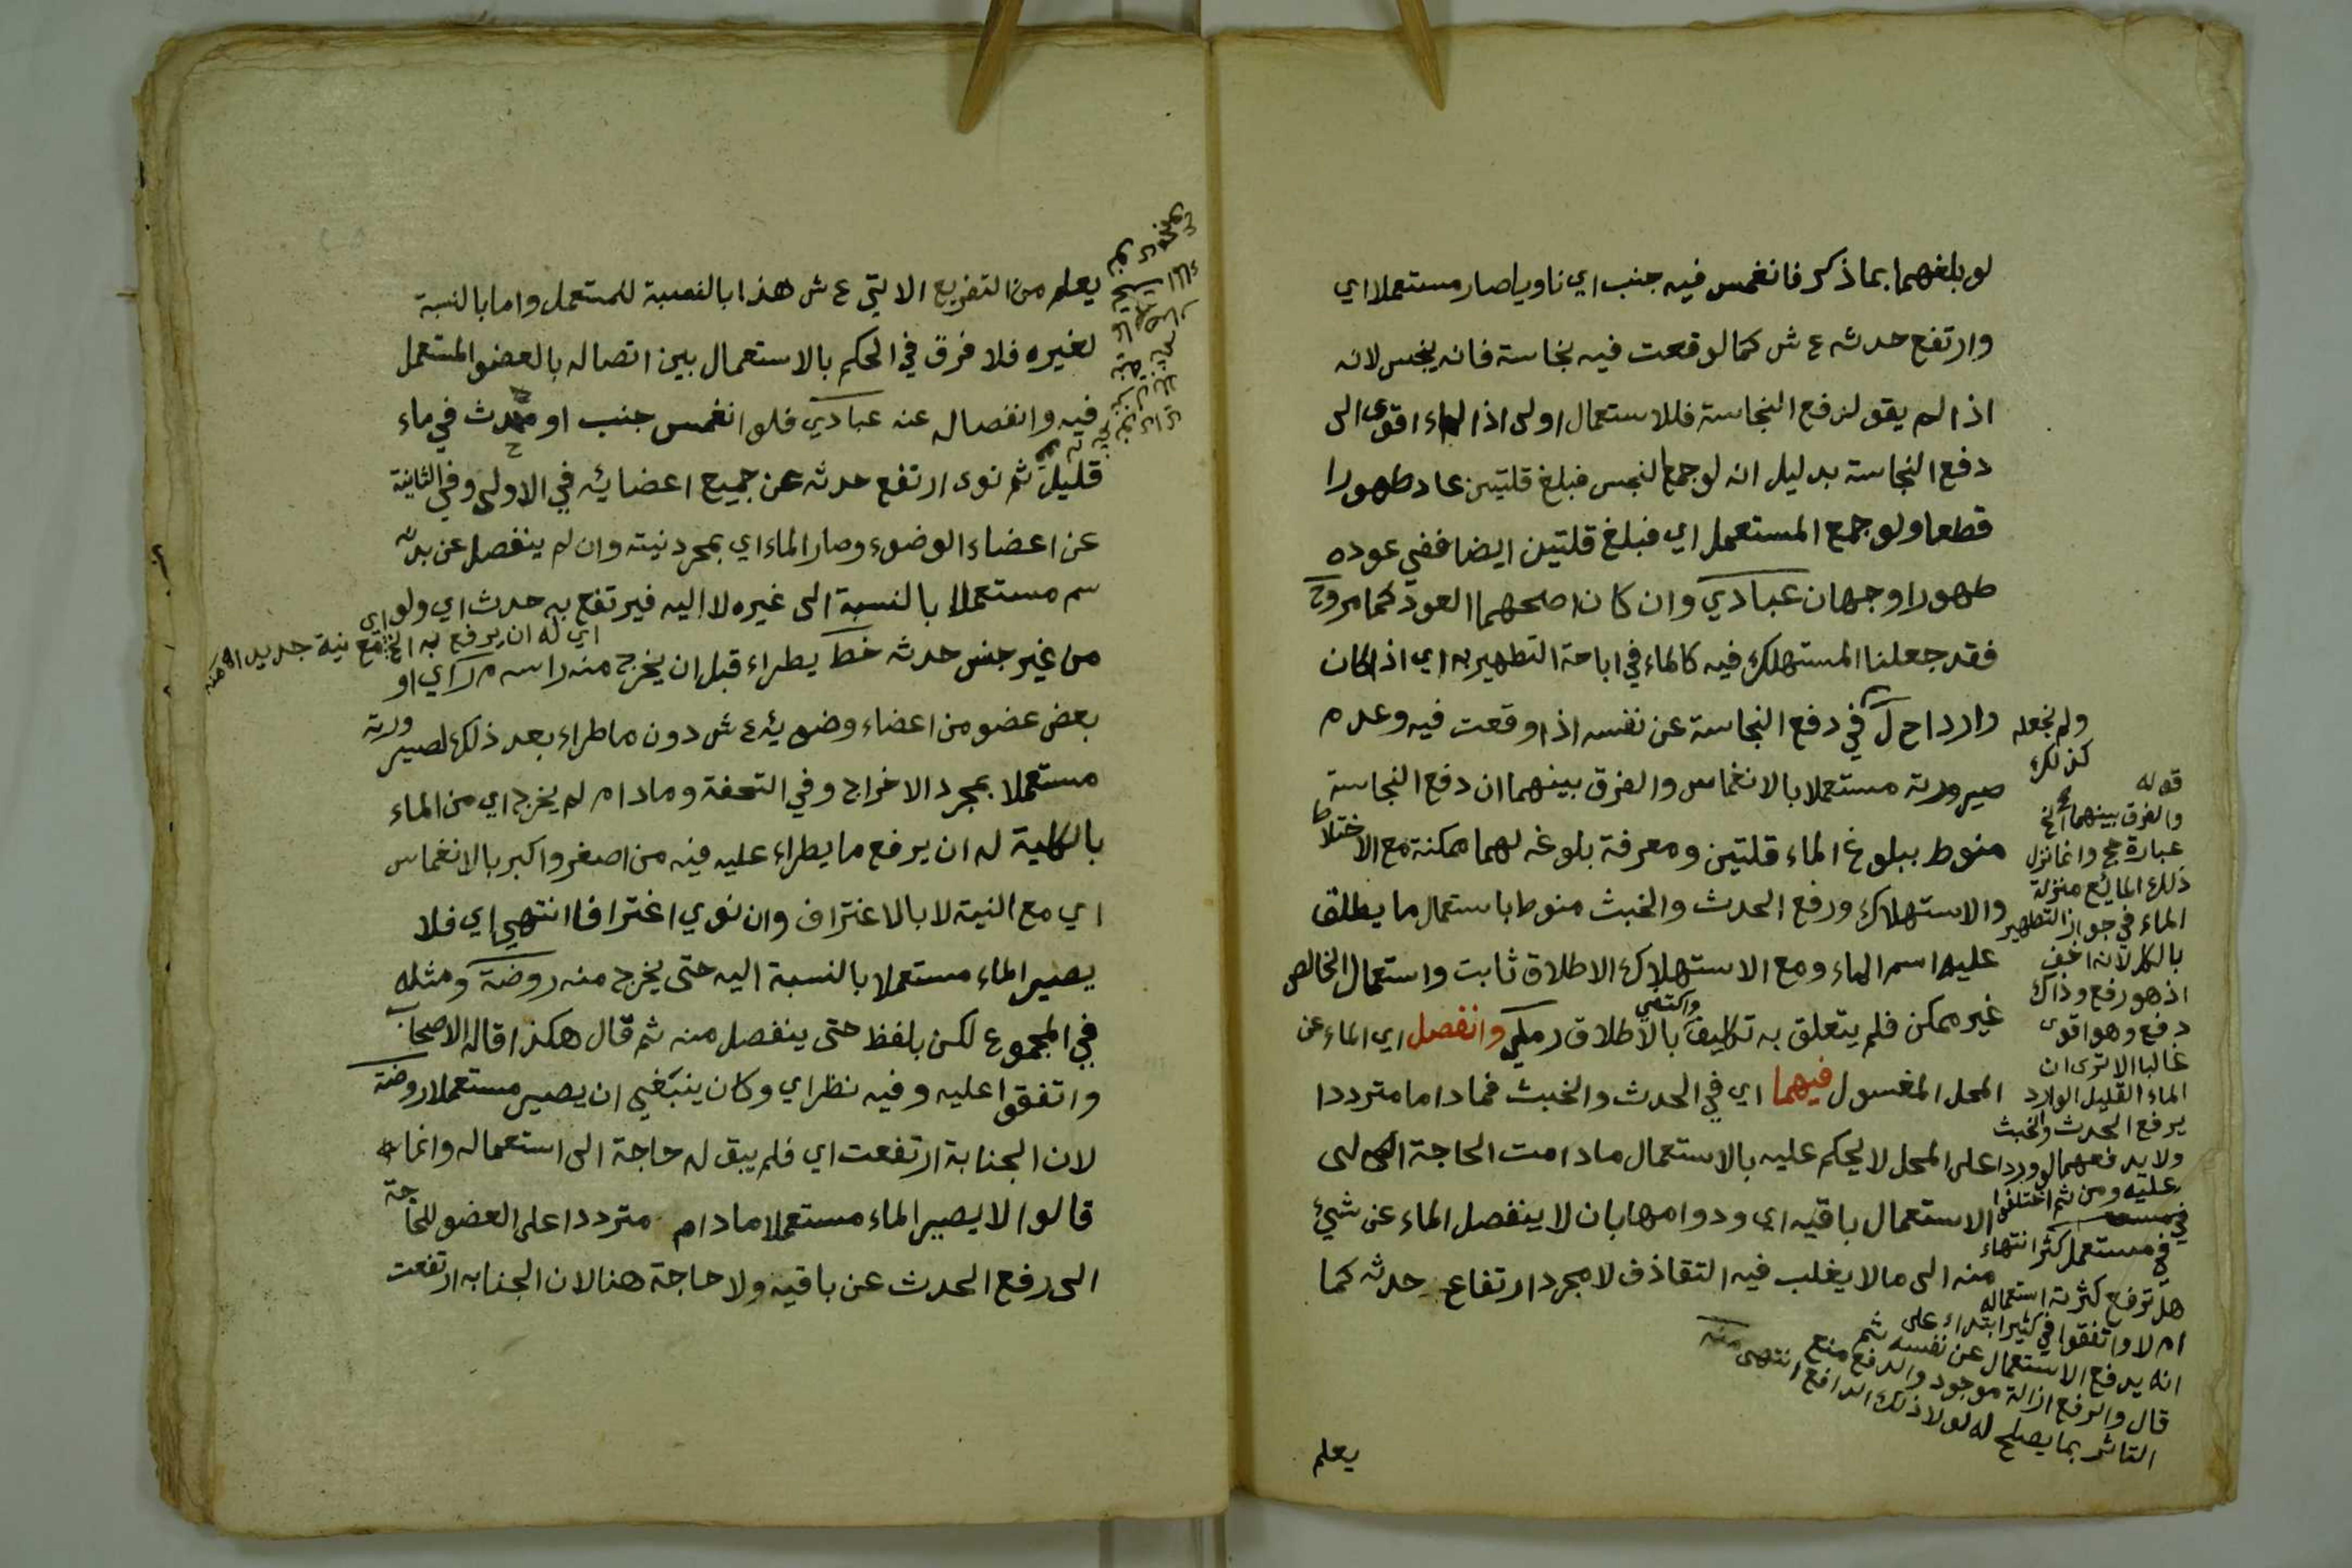 لو بلغهما بما ذكر فانغمس فيه جنب اي ناويا صار مستعملا اي
وارتفع حدثه ع ش كما لو قعت فيه نجاسة فانه ينجس لانه
اذا لم يقو لدفع النجاسة فللاستعمال اولى اذ الماء اقوى الى
دفع النجاسة بدليل انه لو جمع النجس فبلغ قلتين عاد طهورا
قطعا ولو جمع المستعمل اي فبلغ قلتين ايضا ففي عوده
طهورا وجهان عبادي وان كان اصحهما العود كما مر وح
فقد جعلنا المستهلك فيه كالماء في اباحة التطهير به اي اذا كان
واردا ح ل في دفع النجاسة عن نفسه اذا وقعت فيه وعدم
صيرورته مستعملا بالانغماس والفرق بينهما ان دفع النجاسة
منوط ببلوغ الماء قلتين ومعرفة بلوغه لهما ممكنة مع الاختلاط
والاستهلاك ورفع الحدث والخبث منوط باستعمال ما يطلق
عليه اسم الماء ومع الاستهلاك الاطلاق ثابت واستعمال الخالص
غير ممكن فلم يتعلق به تكليف واكتفي بالاطلاق رملي وانفصل اي الماء عن
المحل المغسول فيهما اي في الحدث والخبث فما دام مترددا
على المحل لا يحكم عليه بالاستعمال ما دامت الحاجة الى
الاستعمال باقيه اي ودوامها بان لا ينفصل الماء عن شيء
منه الى ما لا يغلب فيه التقاذف لا مجرد ارتفاع حدثه كما
يعلم
ولم نجعله
كذلك
قوله
والفرق بينهما الخ
عبارة حج وانما نزل
ذلك المائع منزلة
الماء في جواز التطهير
بالكل لانه اخف
اذ هو رفع وذاك
دفع وهو اقوى
غالبا الا ترى ان
الماء القليل الوارد
يرفع الحدث والخبث
ولا يدفعهما لو وردا
عليه ومن ثم اختلفوا
في مستعمل كثر انتهاء
هل ترفع كثرته استعماله
ام لا واتفقوا في كثير ابتداء على
انه يدفع الاستعمال عن نفسه ثم
قال والرفع ازالة موجود والدفع منع
التاثر بما يصلح له لولا ذلك الدافع انتهى منه
يعلم من التفريع الاتي ع ش هذا بالنسبة للمستعمل واما بالنسبة
لغيره فلا فرق في الحكم بالاستعمال بين اتصاله بالعضو المستعمل
فيه وانفصاله عنه عبادي فلو انغمس جنب او محدث في ماء
قليل ثم نوى ارتفع حدثه عن جميع اعضائه في الاولى وفي الثانية
عن اعضاء الوضوء وصار الماء اي بمجرد نيته وان لم ينفصل عن بدنه
سم مستعملا بالنسبة الى غيره لا اليه فيرتفع به حدث اي ولو
اي له ان يرفع به الخ مع نية جديد
من غير جنس حدثه خط يطراء قبل ان يخرج منه راسه م ر اي او
بعض عضو من اعضاء وضوئه ع ش دون ما طراء بعد ذلك لصيرورته
مستعملا بمجرد الاخراج وفي التحفة وما دام لم يخرج اي من الماء
بالكلية له ان يرفع ما يطراء عليه فيه من اصغر واكبر بالانغماس
اي مع النية لا بالاغتراف وان نوي اغترافا انتهي اي فلا
يصير الماء مستعملا بالنسبة اليه حتى يخرج منه روضة ومثله
في المجموع لكن بلفظ حتى ينفصل منه ثم قال هكذا قاله الاصحاب
واتفقوا عليه وفيه نظر اي وكان ينبغي ان يصير مستعملا روضة
لان الجنابة ارتفعت اي فلم يبق له حاجة الى استعماله وانما
قالوا لا يصير الماء مستعملا ما دام مترددا على العضو للحاجة
الى رفع الحدث عن باقيه ولا حاجة هنا لان الجنابه ارتفعت